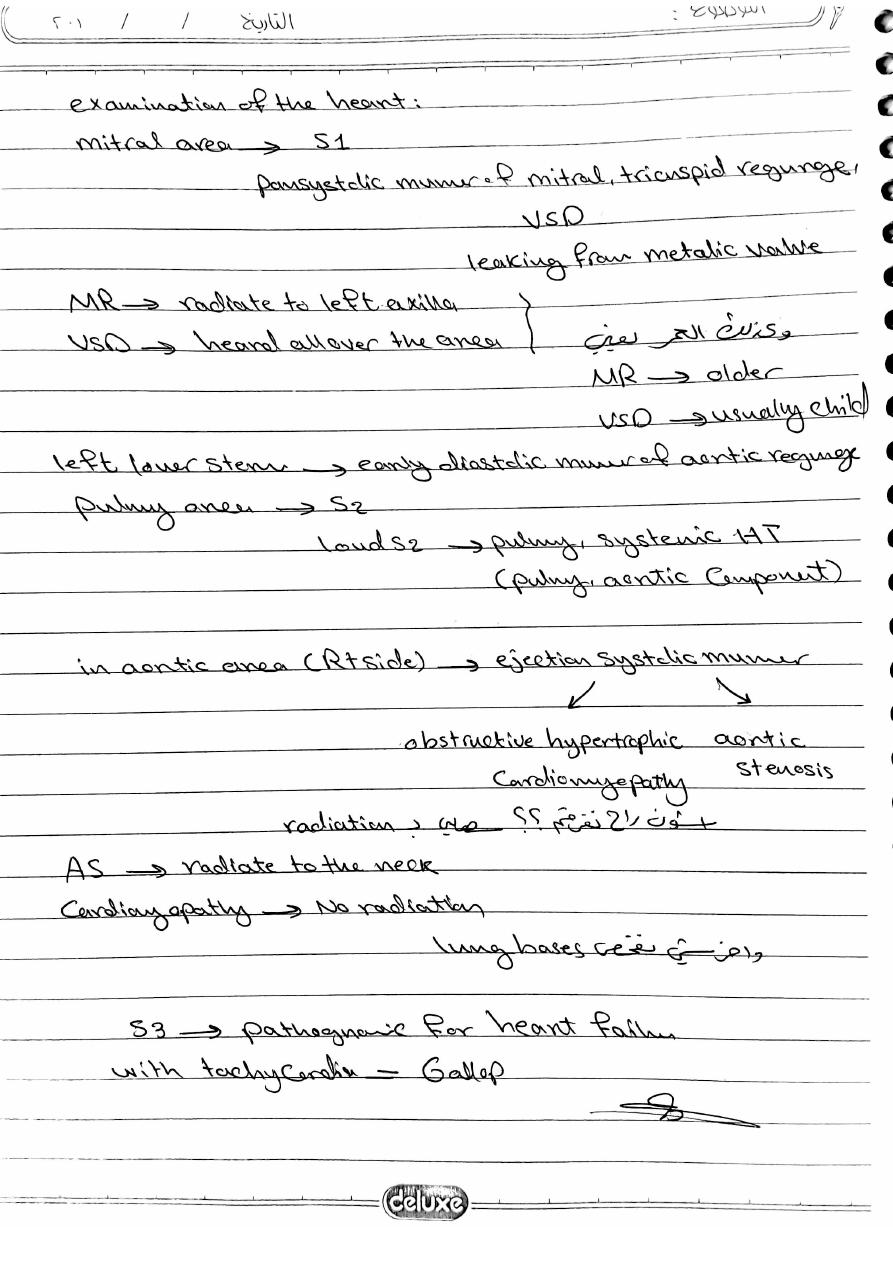 التاريخ / / ٢٠١
الموضوع :
examination of the heart:
mitral area → S1
pansystolic murmer of mitral, tricuspid regurge,
VSD
leaking from metalic valve
MR → radiate to left axilla
VSD → heard all over the area
وكذلك العمر
MR → older
VSD → usually child
left lower sternu → early diastolic murmer of aortic regurge
pulmny area → S2
loud S2 → pulmny, systemic HT
(pulmny, aortic Component)
in aortic area (Rt side) → ejection systolic murmer
↙ ↘
obstructive hypertrophic aortic
Cardiomyopathy stenosis
شلون راح نفرقهم ؟؟ radiation
AS → radiate to the neck
Cardiomyopathy → No radiation
lung bases
S3 → pathognomic for heart failure
with tachycardia = Gallop
deluxe